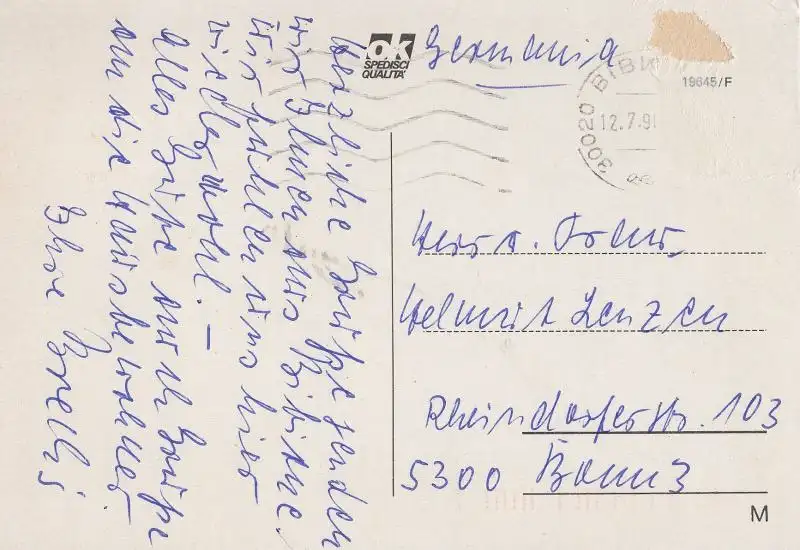 Herzliche Grüße senden
wir Ihnen aus Bibione.
Wir fühlen uns hier
wieder wohl. –
Alles Gute auch Grüße
an die Hausbewohner
Ihre
OK
SPEDISCI
QUALITA'
Germania
30020 BIBI
12.7.91
19645/F
Herr u. Frau
Helmut Lenzen
Rheindorferstr. 103
5300 Bonn 3
M